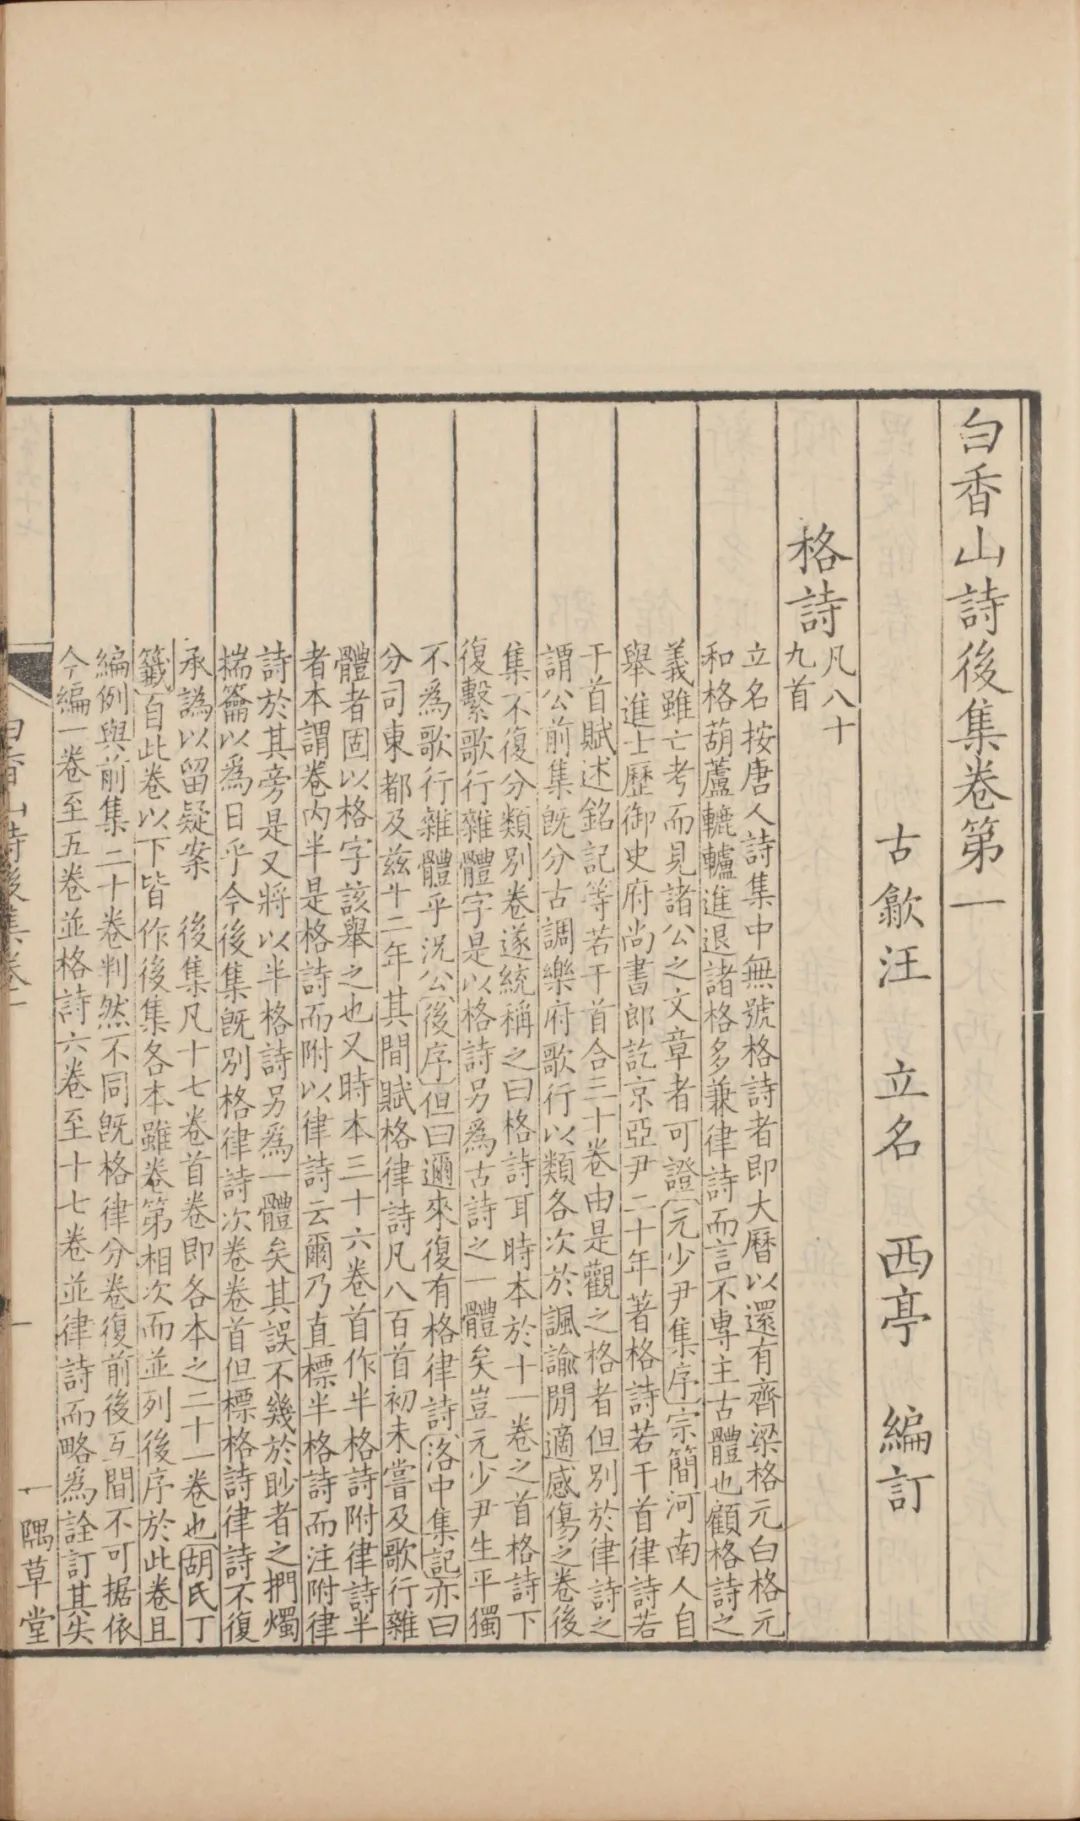 白香山詩後集卷第一
古歙汪 立名 西亭 編訂
格詩凡八十
九首
立名按唐人詩集中無號格詩者即大曆以還有齊梁格元白格元
和格葫蘆轆轤進退諸格多兼律詩而言不專主古體也顧格詩之
義雖亡考而見諸公之文章者可證元少尹集序宗簡河南人自
舉進士歷御史府尚書郎訖京亞尹二十年著格詩若干首律詩若
干首賦述銘記等若干首合三十卷由是觀之格者但別於律詩之
謂公前集旣分古調樂府歌行以類各次於諷諭閒適感傷之卷後
集不復分類別卷遂統稱之曰格詩耳時本於十一卷之首格詩下
復繫歌行雜體字是以格詩另爲古詩之一體矣豈元少尹生平獨
不爲歌行雜體乎況公後序但曰邇來復有格律詩洛中集記亦曰
分司東都及茲十二年其間賦格律詩凡八百首初未嘗及歌行雜
體者固以格字該舉之也又時本三十六卷首作半格詩附律詩半
者本謂卷內半是格詩而附以律詩云爾乃直標半格詩而注附律
詩於其旁是又將以半格詩另爲一體矣其誤不幾於眇者之捫燭
揣籥以爲日乎今後集旣別格律詩次卷卷首但標格詩律詩不復
承譌以留疑案 後集凡十七卷首卷即各本之二十一卷也胡氏丁
籤自此卷以下皆作後集各本雖卷第相次而並列後序於此卷且
編例與前集二十卷判然不同旣格律分卷復前後互間不可据依
今編一卷至五卷並格詩六卷至十七卷並律詩而略爲詮訂其失
白香山詩後集卷一 一 一隅草堂